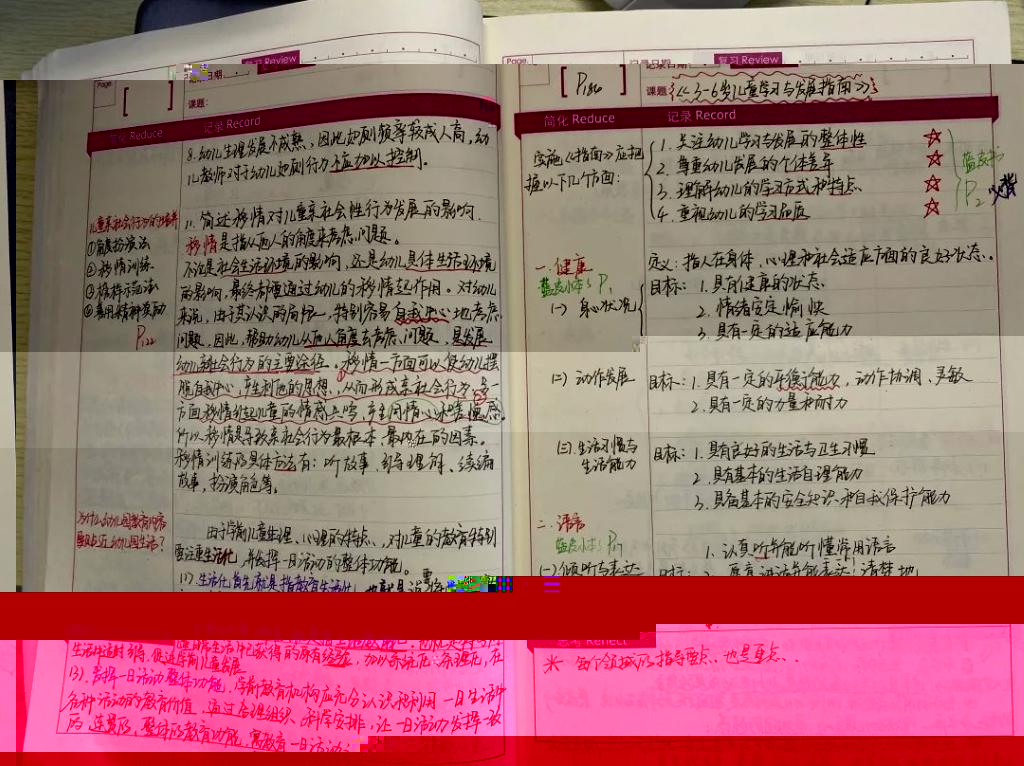 复习 Review
Page.
课题:
简化 Reduce
记录 Record
8.幼儿生理发展不成熟,因此
儿教师对于幼儿
行为不应加以控制。
儿童亲社会行为的培养
①角色扮演法
②移情训练
③榜样示范法
④善用精神奖励
P122
11. 简述移情对儿童亲社会性行为发展的影响.
移情是指从他人的角度来考虑问题。
不论是社会生活环境的影响,还是幼儿具体生活环境
的影响,最终都需通过幼儿的移情起作用。对幼儿
来说,由于其认识的局限,特别容易自我中心地考虑
问题,因此,帮助幼儿从他人角度去考虑问题,是发展
幼儿亲社会行为的主要途径。移情一方面可以使幼儿摆
脱自我中心,产生利他的思想,从而形成亲社会行为.另一
方面移情引起儿童的情感共鸣,产生同情心和羞愧感.
所以移情是导致亲社会行为最根本、最内在的因素。
移情训练的具体方法有:听故事、引导理解、续编
故事,扮演角色等。
为什么幼儿园教育内容
要贴近幼儿园生活?
由于学前儿童生理、心理的特点,对儿童的教育特别
要注重生活化,并发挥一日活动的整体功能。
生活中适时引导,促进学前儿童发展
(3).发挥一日活动整体功能,学前教育机构应充分认识和利用一日生活中
各种活动的教育价值,通过合理组织、科学安排,让一日活动发挥一致
的、连贯的、整体的教育功能,寓教育一日活动
Page.
复习 Review
P186
课题:《3-6岁儿童学习与发展指南》
简化 Reduce
记录 Record
实施《指南》应把
握以下几个方面:
1. 关注幼儿学习与发展的整体性
2. 尊重幼儿发展的个体差异
3. 理解幼儿的学习方式和特点
4. 重视幼儿的学习品质
蓝皮书
P2 必背
一.健康
蓝皮小本: P1
定义:指人在身体、心理和社会适应方面的良好状态.
(一) 身心状况
目标: 1.具有健康的状态
2. 情绪安定愉快
3. 具有一定的适应能力
(二) 动作发展
目标: 1.具有一定的平衡能力,动作协调、灵敏
2.具有一定的力量和耐力
(三).生活习惯与
生活能力
目标: 1.具有良好的生活与卫生习惯
2.具有基本的生活自理能力
3.具备基本的安全知识和自我保护能力
二.语言
蓝皮小本:
(一)倾听与表达
1. 认真听并能听懂常用语言
思考 Reflect
* 每个领域的指导要点,也是重点..